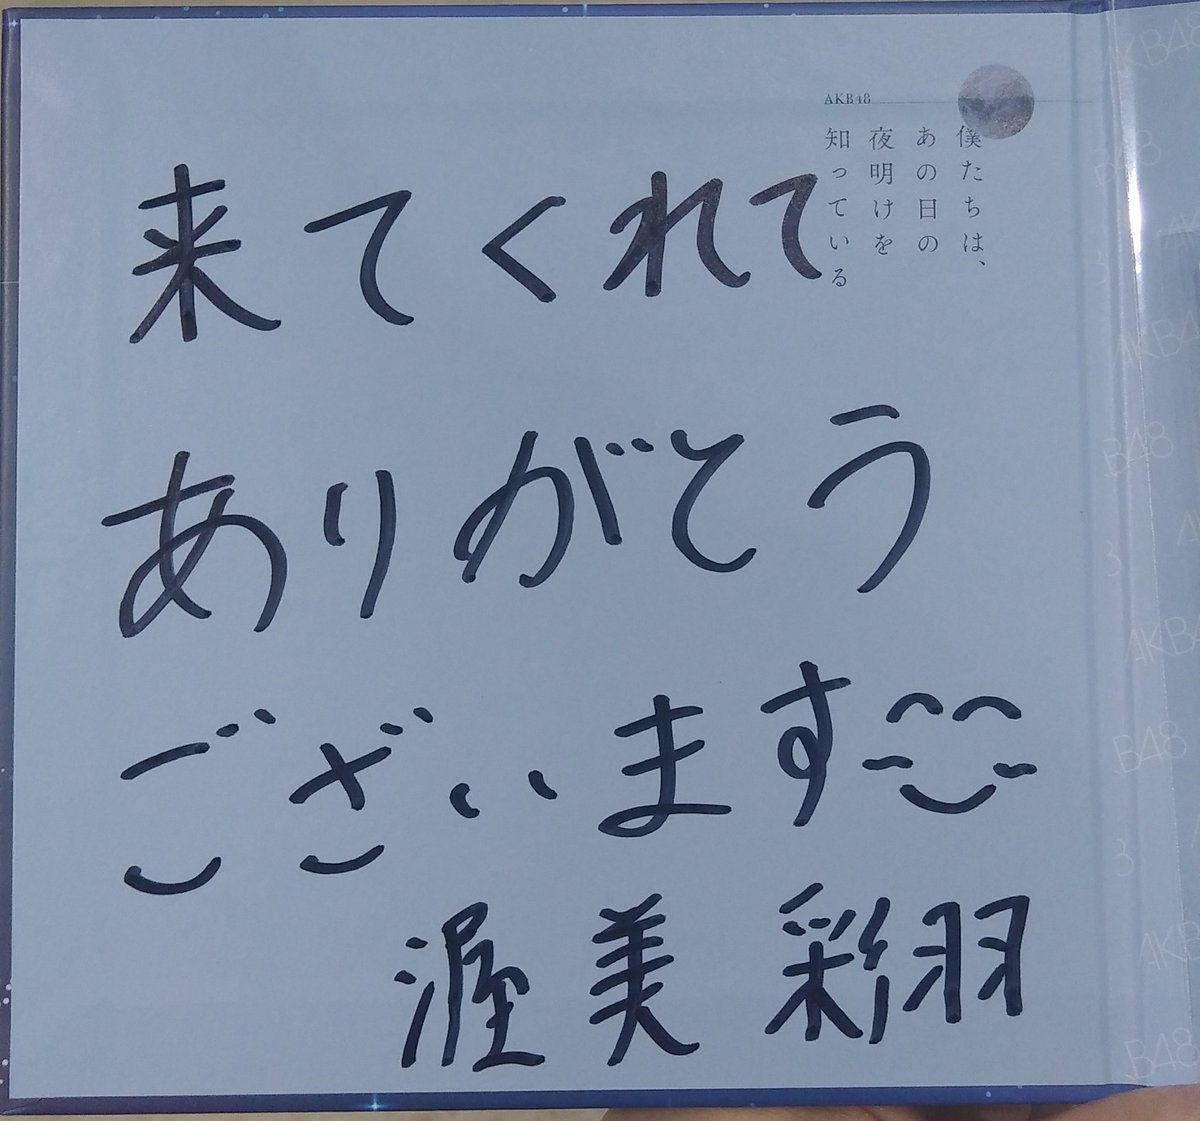 AKB48
僕たちは、
あの日の
夜明けを
知っている
来てくれて
ありがとう
ございます
渥美 彩羽
AKB48
B48
AKB4
B48
AKB4
B48
AKB
B48